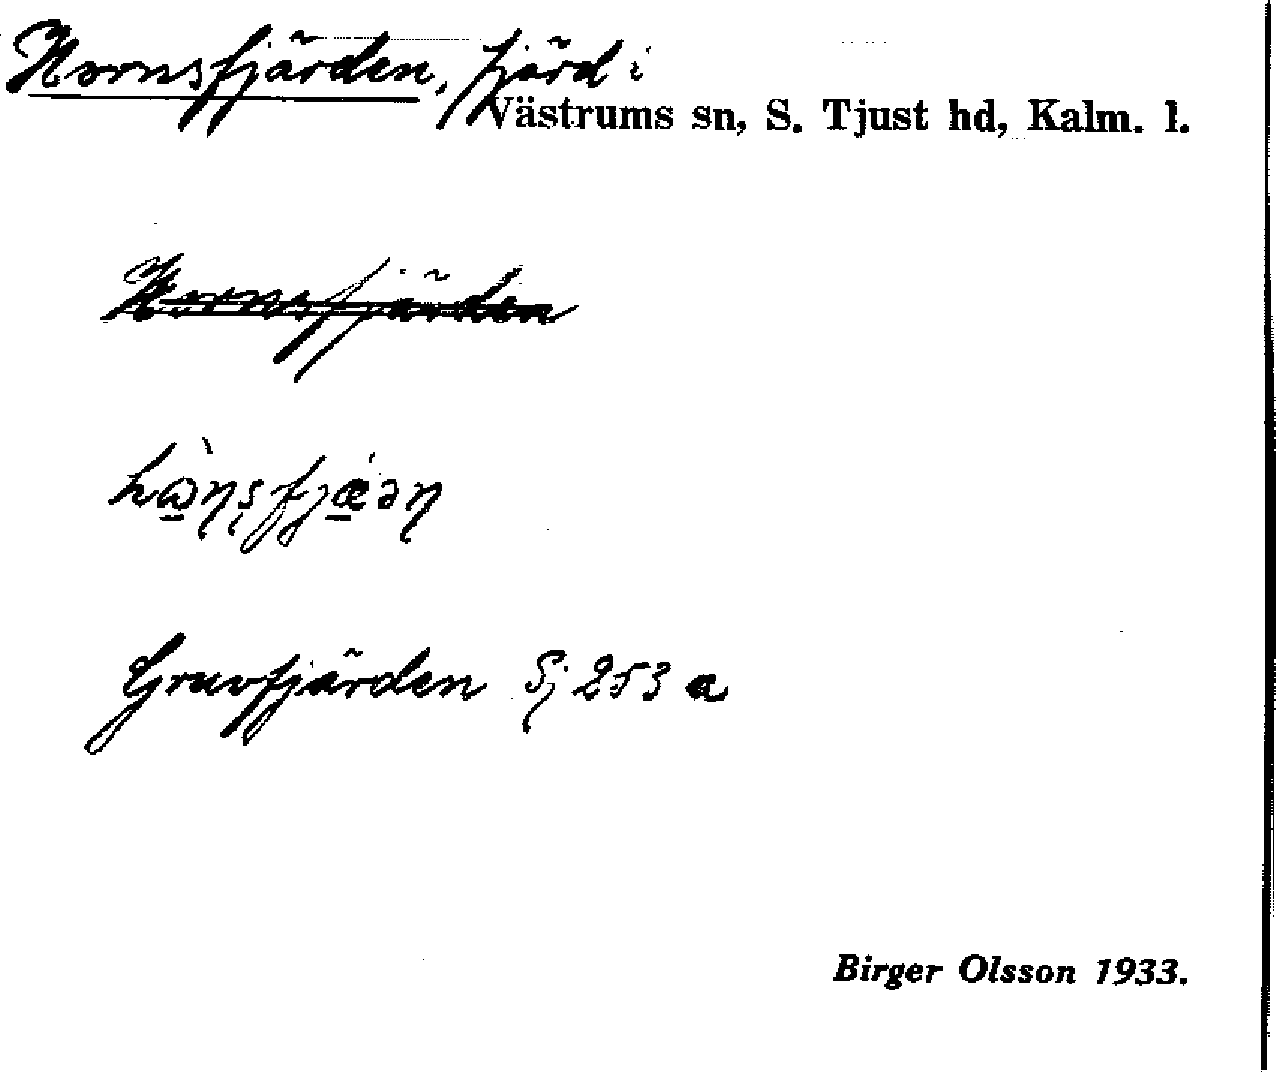 Hornsfjärden, fjärd i
Västrums sn, S. Tjust hd, Kalm. l.
Hornsfjärden
Gruvfjärden Sj 253 a
Birger Olsson 1933.